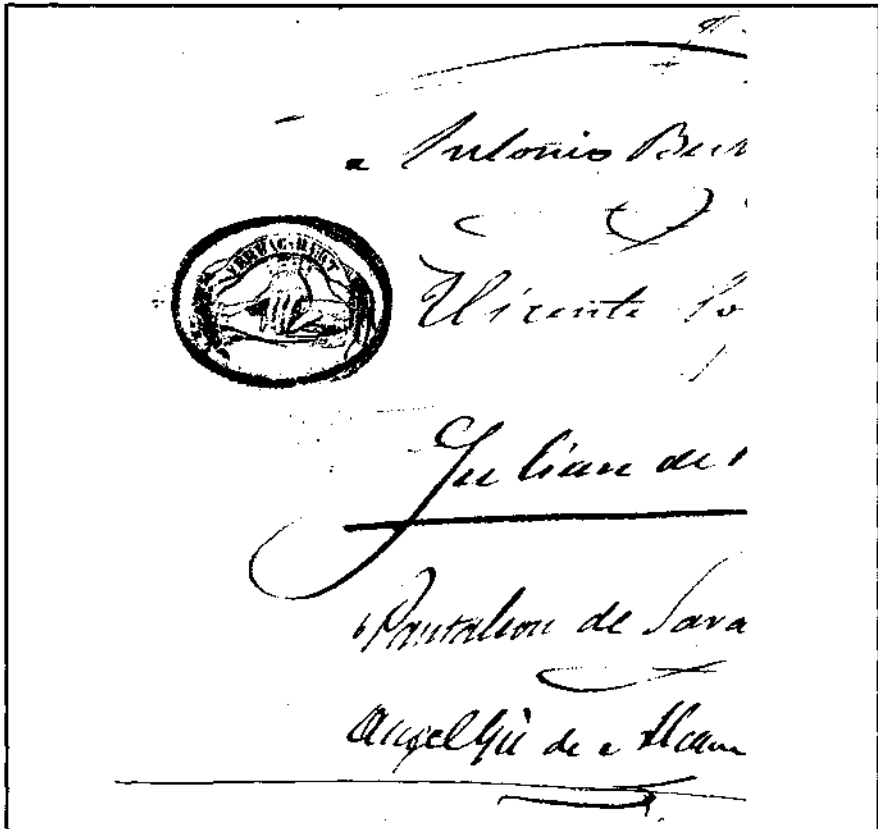 Antonio
YRURAC-BAT
Vicente
Julian de
Pantaleon de Sara
Angel Gil de Alcam